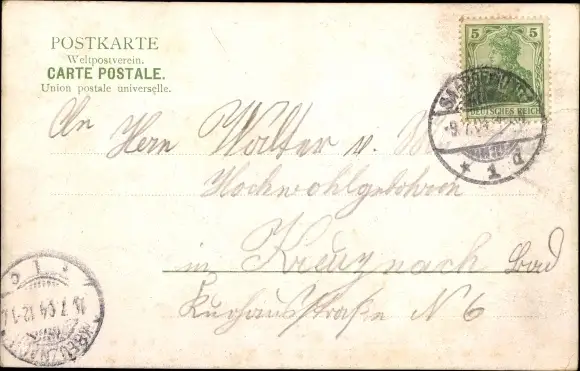 POSTKARTE
Weltpostverein.
CARTE POSTALE.
Union postale universelle.
5 5
DEUTSCHES REICH
An Herrn Walter v.
Hochwohlgeboren
in Kreuznach Bad
Kurhausstraße N 6
* 1 d
7.04 12-1
KREUZNACH